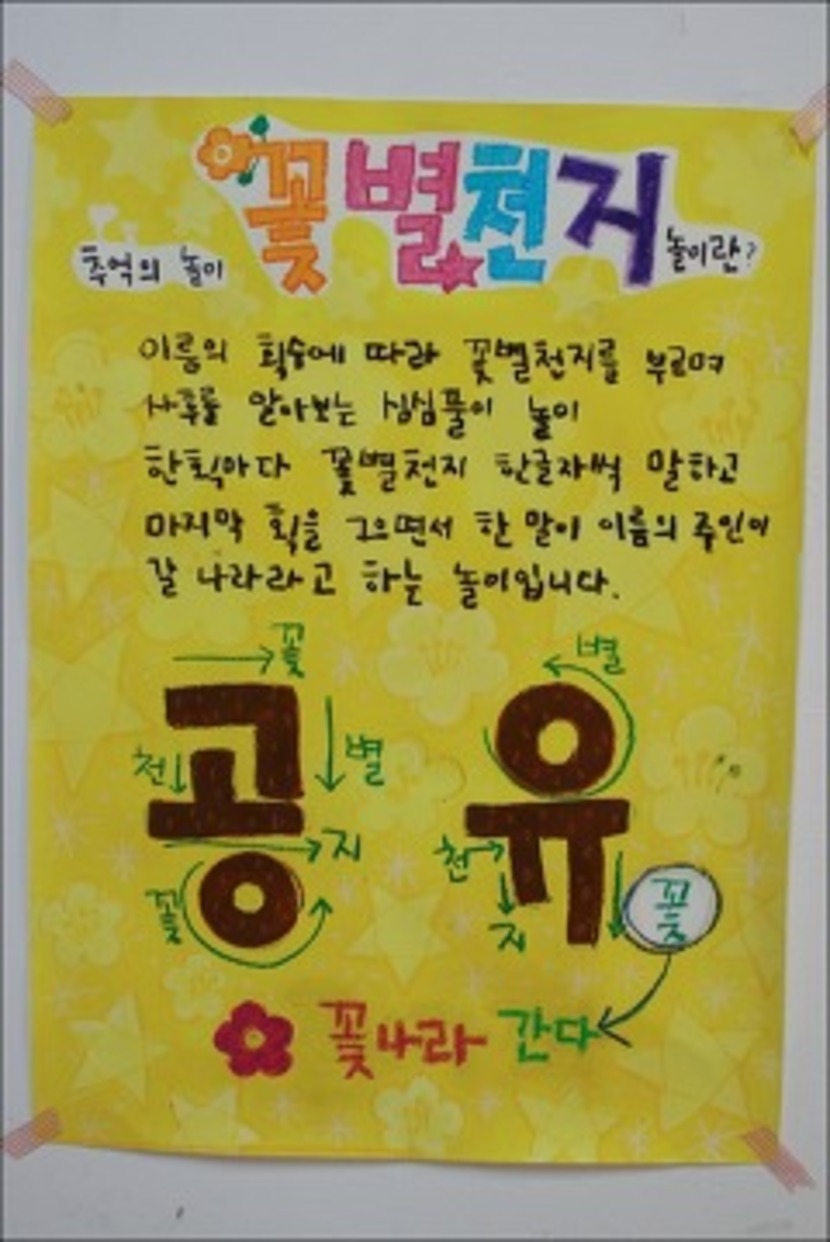 추억의 놀이 꽃별천지 놀이란?
이름의 획수에 따라 꽃별천지를 부르며
사주를 알아보는 심심풀이 놀이
한획마다 꽃별천지 한글자씩 말하고
마지막 획을 그으면서 한 말이 이름의 주인이
갈 나라라고 하는 놀이입니다.
꽃 별
공 유
천 별
지 천
꽃 지 꽃
꽃나라 간다